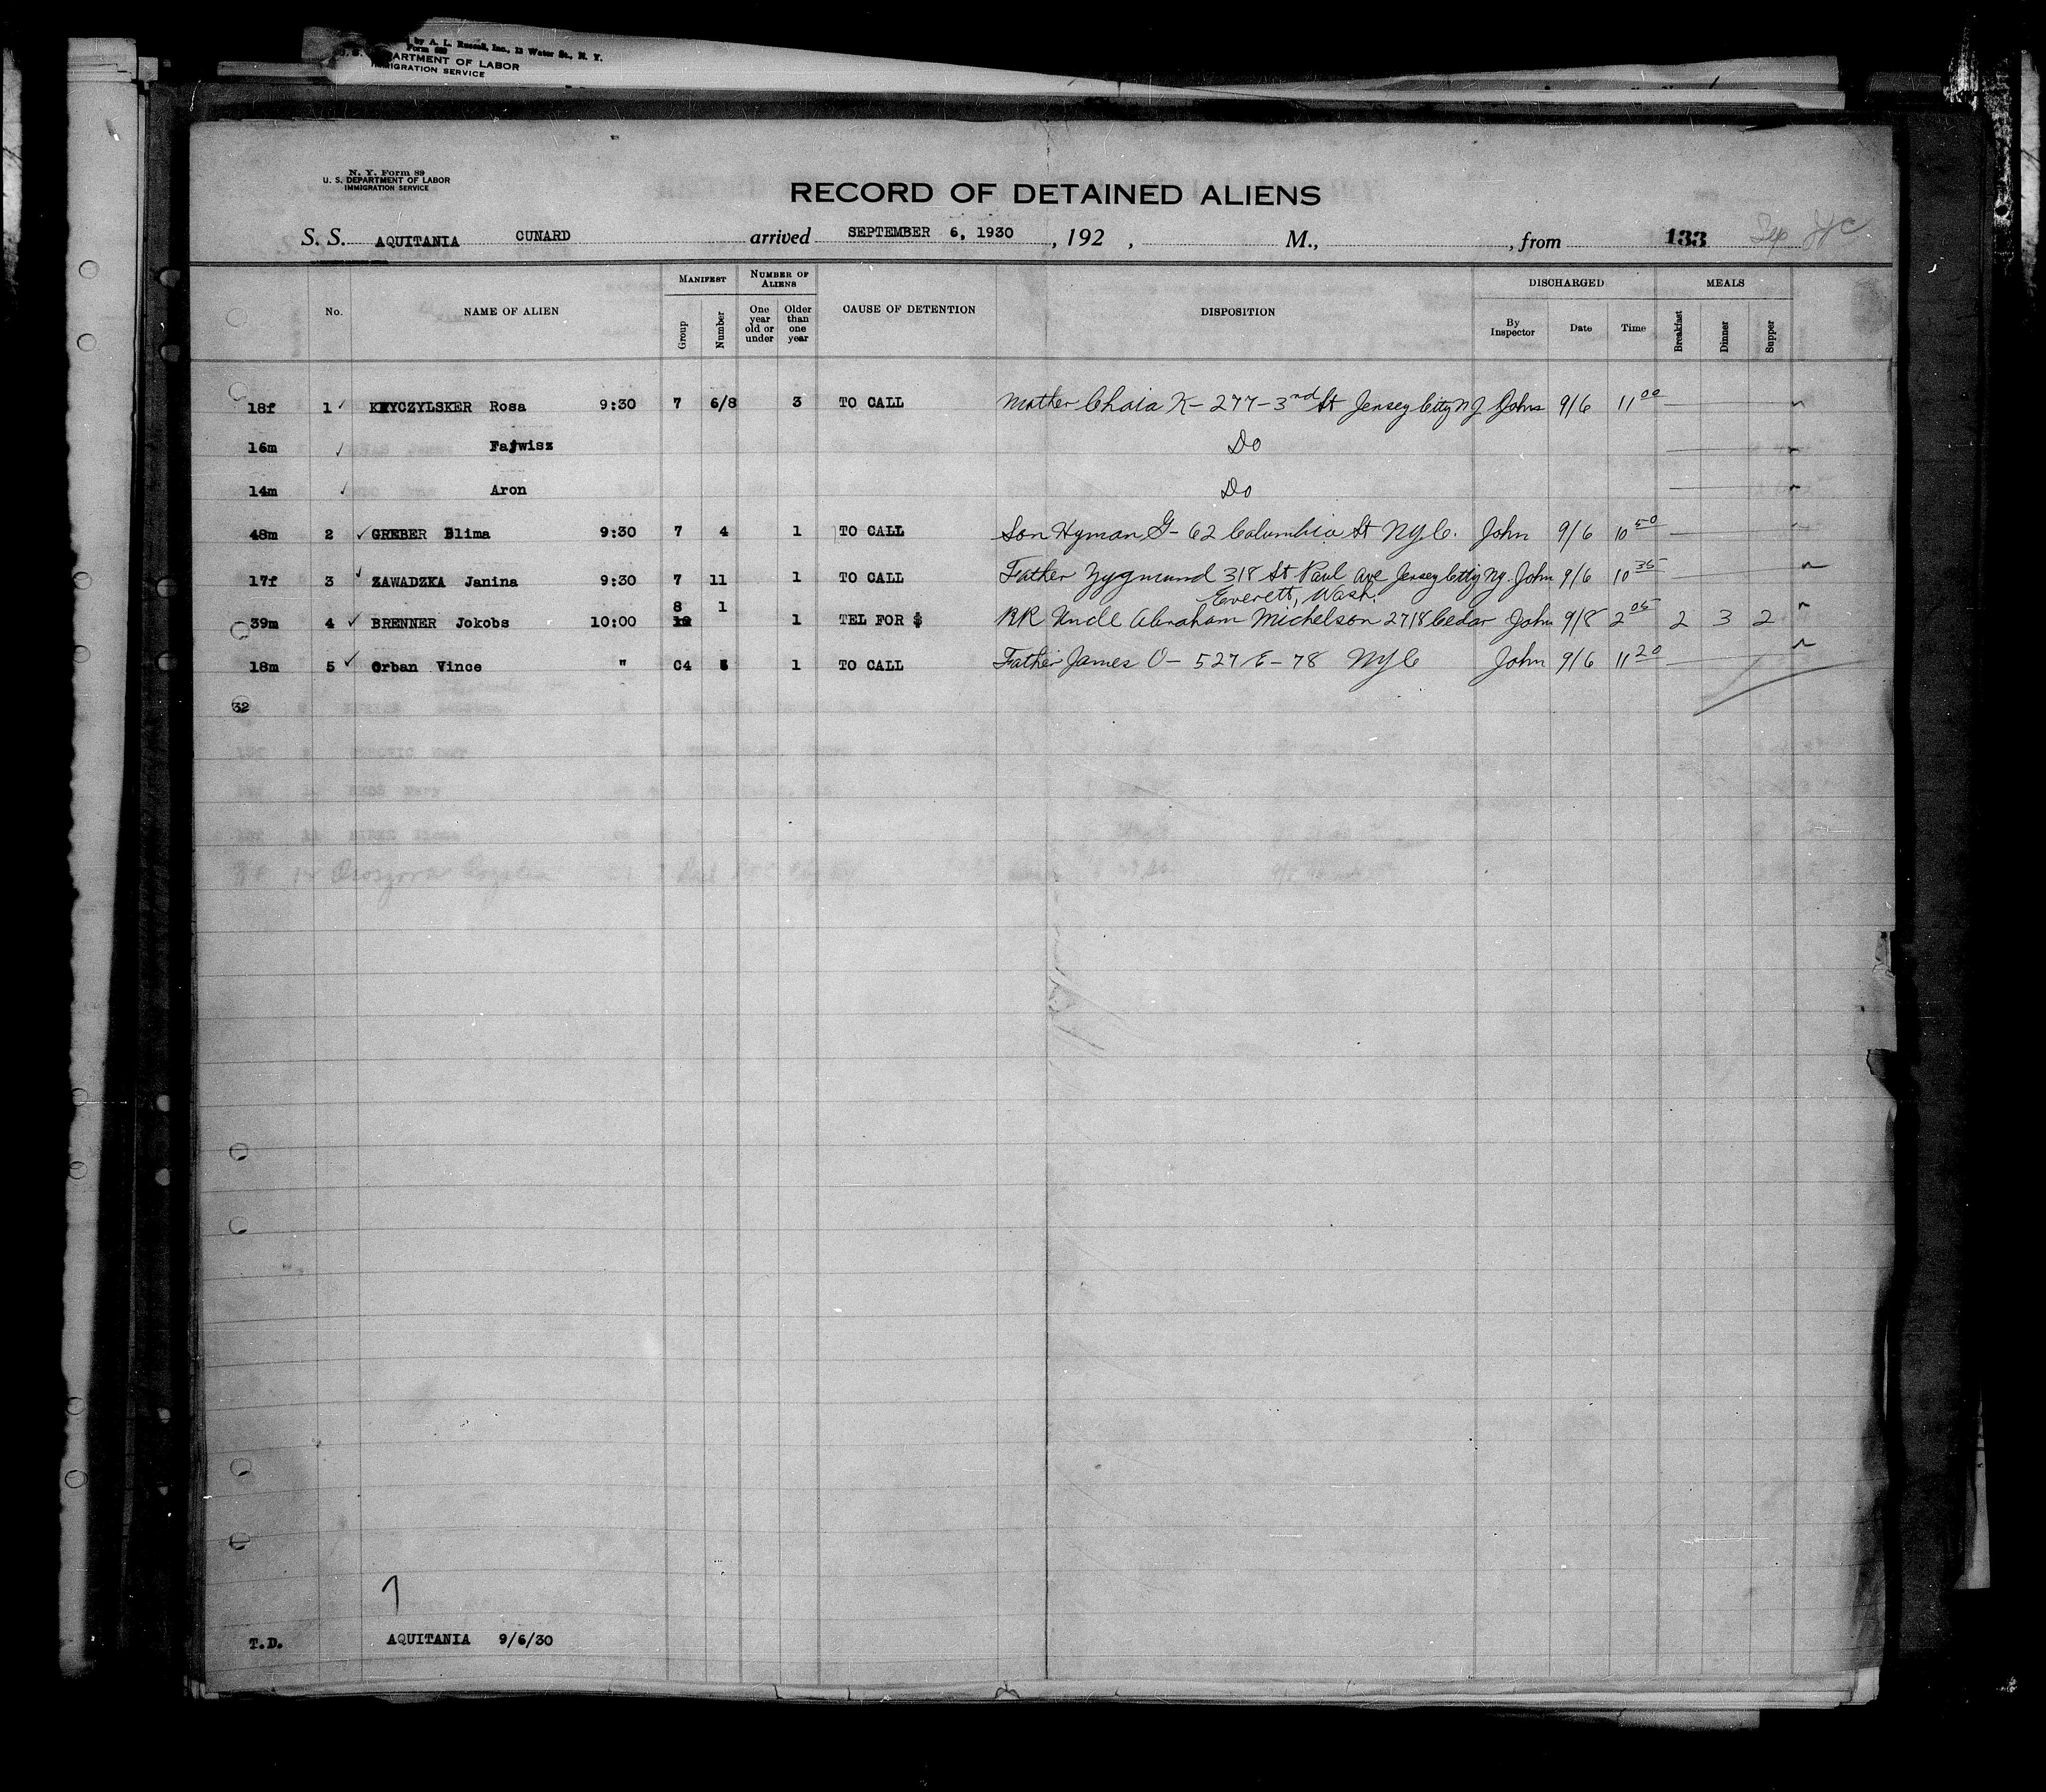 by A. L. Russell, Inc., 13 Water St., N. Y.
Form
DEPARTMENT OF LABOR
IMMIGRATION SERVICE
N. Y. Form 89
U. S. DEPARTMENT OF LABOR
IMMIGRATION SERVICE
RECORD OF DETAINED ALIENS
S. S. AQUITANIA CUNARD arrived SEPTEMBER 6, 1930, 192 , M., , from 133 Sep
MANIFEST NUMBER OF ALIENS DISCHARGED MEALS
No. NAME OF ALIEN Group Number One year old or under Older than one year CAUSE OF DETENTION DISPOSITION By Inspector Date Time Breakfast Dinner Supper
18f 1 ✓ KRYCZYLSKER Rosa 9:30 7 6/8 3 TO CALL Mother Chaia K- 277-3rd St Jersey City NJ Johs 9/6 11 00
16m ✓ Fajwisz Do
14m ✓ Aron Do
48m 2 ✓ GREBER Blima 9:30 7 4 1 TO CALL Son Hyman G- 62 Columbia St NYC. John 9/6 10 50
17f 3 ✓ ZAWADZKA Janina 9:30 7 11 1 TO CALL Father Zygmund 318 St Paul Ave Jersey City NJ. John 9/6 10 35
8 1 Everett, Wash.
39m 4 ✓ BRENNER Jokobs 10:00 1 TEL FOR $ RR Uncle Abraham Michelson 2718 Cedar John 9/8 2 05 2 3 2
18m 5 ✓ Orban Vince " C4 5 1 TO CALL Father James O- 527 E-78 NYC John 9/6 11 20
32
7
T.D. AQUITANIA 9/6/30